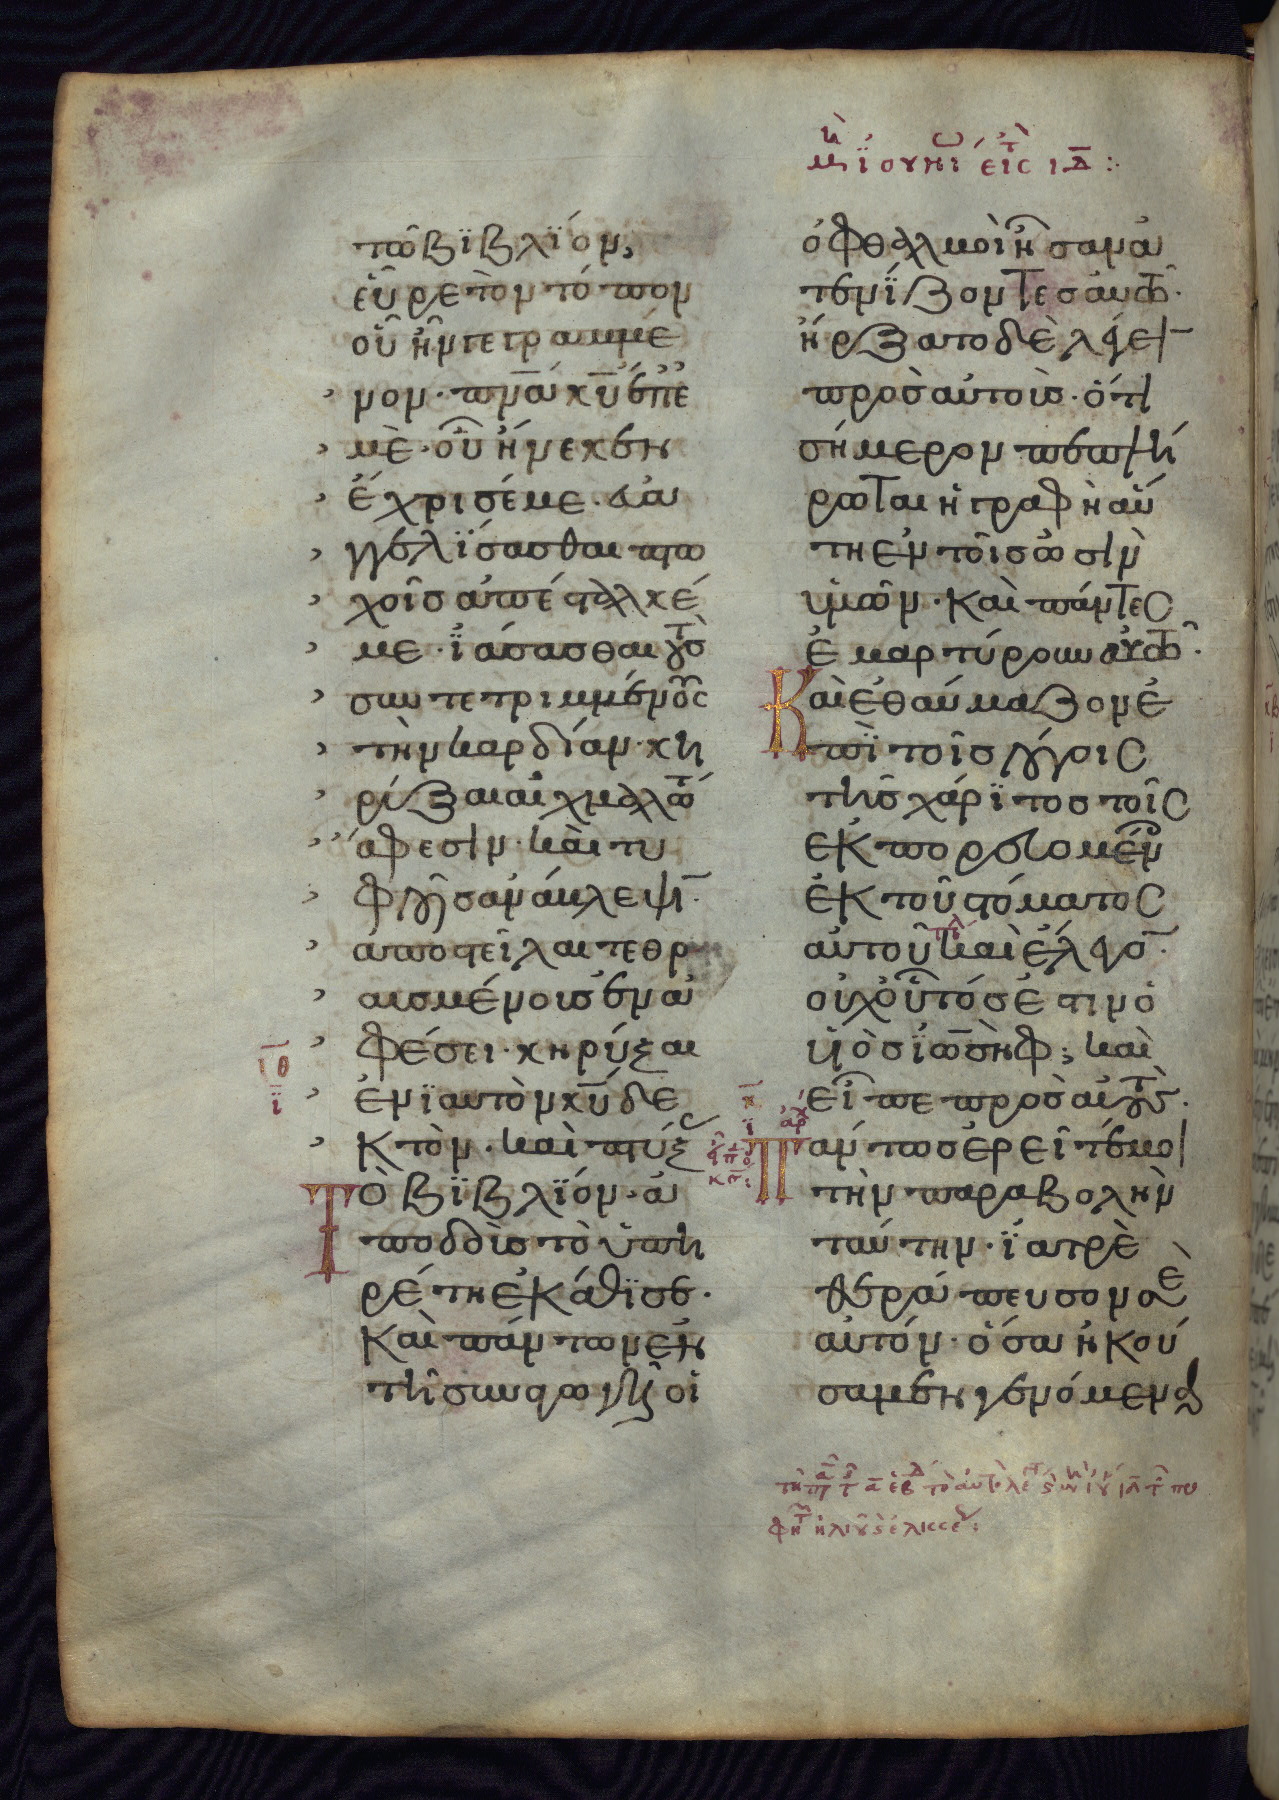 μη ιουνι εις ιδ :·
τὸ βϊβλϊόν,
εὗρε τὸν τόπον
οὗ ἦν γεγραμμέ
νον · πνα κυ ἐπ' ἐ
μὲ · οὗ εἵνεκεν
ἔχρισέ με · εὐα
γγελϊσασθαι πτω
χοῖς ἀπέσταλκέ
με · ϊάσασθαι τοὺς
συντετριμμένους
τὴν καρδίαν · κη
ρύξαι αἰχμαλώτοις
ἄφεσιν · καὶ τυ
φλοῖς ἀνάβλεψιν ·
ἀποστεῖλαι τεθρ
αυσμένους ἐν ἀ
φέσει · κηρύξαι
ἐνϊαυτὸν κυ δε
κτὸν · καὶ πτύξας
Τὸ βϊβλϊον · ἀ
ποδοὺς τῷ ὑπη
ρέτη ἐκάθϊσεν ·
καὶ πάντων ἐν
τῆ συναγωγῆ οἱ
ὀφθαλμοὶ ἦσαν ἀ
τενϊζοντες αὐτῶ ·
ἤρξατο δὲ λέγειν
πρὸς αὐτοὺς · ὅτι
σήμερον πεπλή
ρωται ἡ γραφὴ αὕ
τη ἐν τοῖς ὠσὶν
ὑμῶν · καὶ πάντες
ἐμαρτύρουν αὐτῶ ·
Καὶ ἐθαύμαζον ἐ
πὶ τοῖς λόγοις
τῆς χάρϊτος τοῖς
ἐκπορευομένοις
ἐκ τοῦ στόματος
αὐτοῦ καὶ ἔλεγον ·
οὐχ οὗτός ἐστιν ὁ
υἱὸς ϊωσὴφ ; καὶ
εἶπε πρὸς αὐτούς ·
Πάντως ἐρεῖτέ μοι
τὴν παραβολὴν
ταύτην · ϊατρὲ
θεράπευσον σε
αὐτόν · ὅσα ἠκού
σαμεν γενόμενα
ιθ
ϊ
κ
ϊ